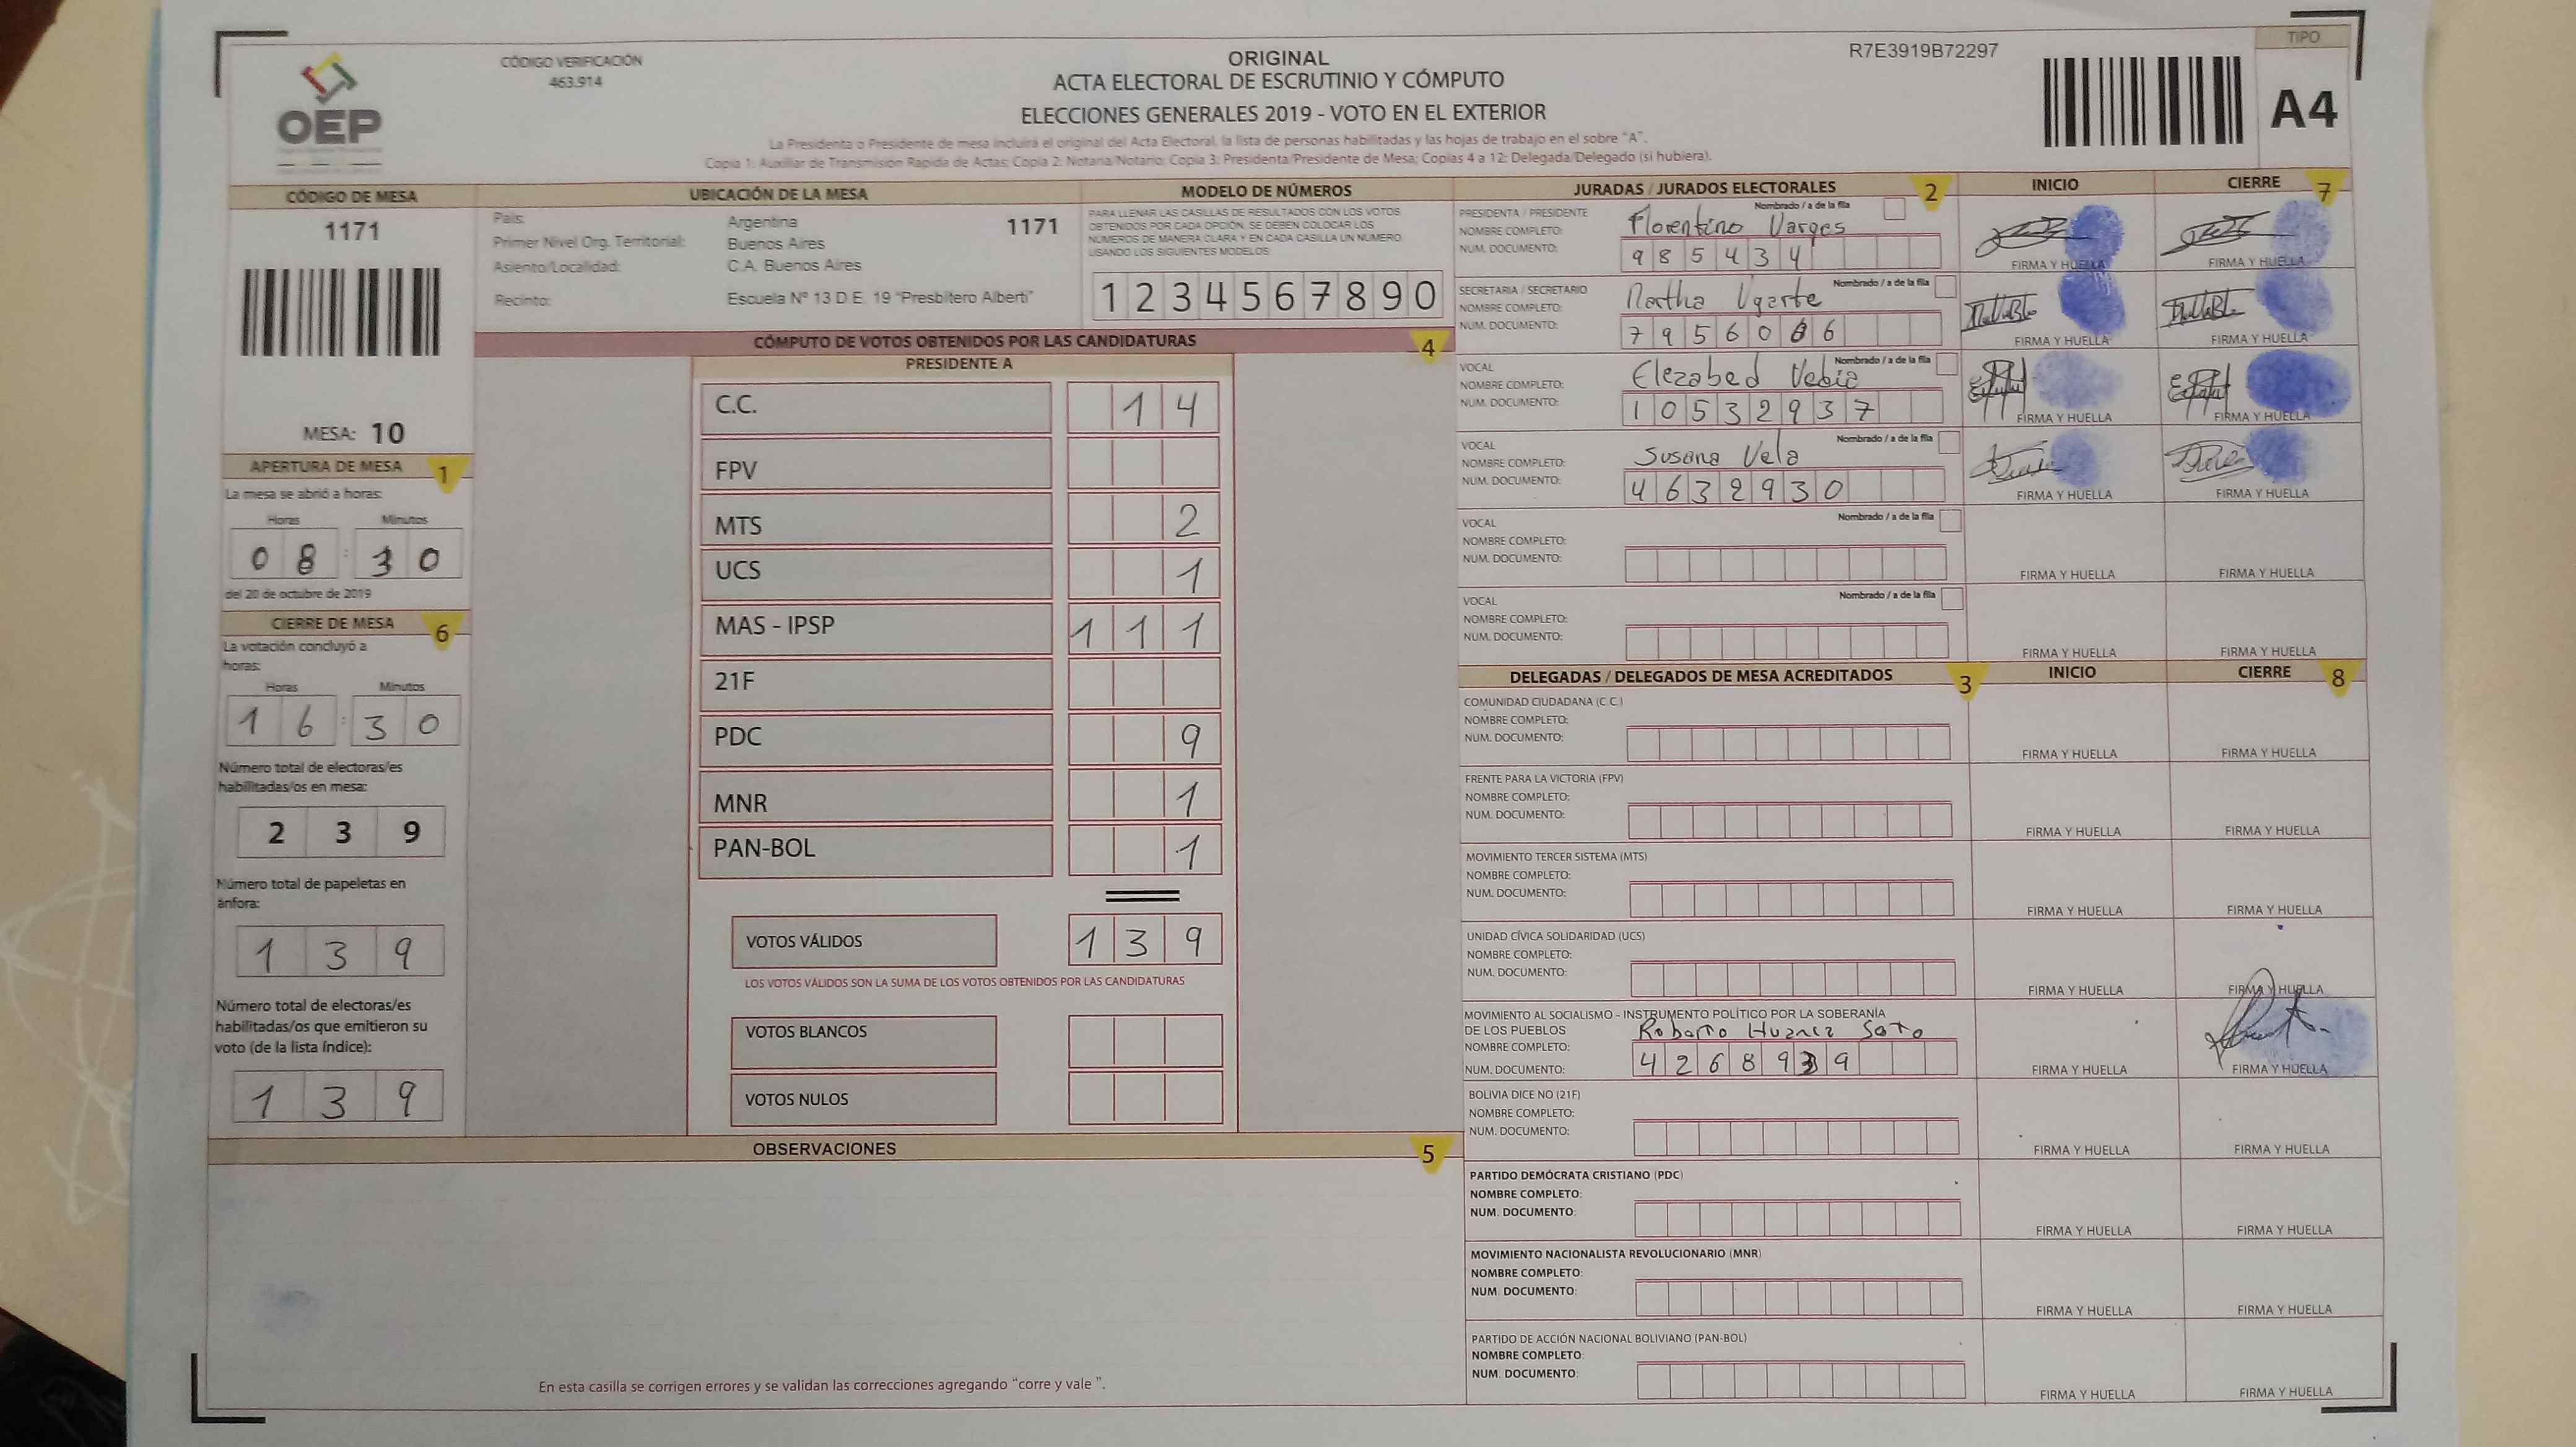 OEP
CÓDIGO VERIFICACIÓN
463.914
ORIGINAL
ACTA ELECTORAL DE ESCRUTINIO Y CÓMPUTO
ELECCIONES GENERALES 2019 - VOTO EN EL EXTERIOR
La Presidenta o Presidente de mesa incluirá el original del Acta Electoral, la lista de personas habilitadas y las hojas de trabajo en el sobre “A”.
Copia 1: Auxiliar de Transmisión Rápida de Actas; Copia 2: Notaria/Notario; Copia 3: Presidenta/Presidente de Mesa; Copias 4 a 12: Delegada/Delegado (si hubiera).
R7E3919B72297
TIPO
A4
CÓDIGO DE MESA
1171
MESA: 10
APERTURA DE MESA 1
La mesa se abrió a horas:
Horas Minutos
08:30
del 20 de octubre de 2019
CIERRE DE MESA 6
La votación concluyó a
horas:
Horas Minutos
16:30
Número total de electoras/es
habilitadas/os en mesa:
2 3 9
Número total de papeletas en
ánfora:
1 3 9
Número total de electoras/es
habilitadas/os que emitieron su
voto (de la lista índice):
1 3 9
UBICACIÓN DE LA MESA
País: Argentina 1171
Primer Nivel Org. Territorial: Buenos Aires
Asiento/Localidad: C.A. Buenos Aires
Recinto: Escuela Nº 13 D.E. 19 "Presbitero Alberti"
MODELO DE NÚMEROS
PARA LLENAR LAS CASILLAS DE RESULTADOS CON LOS VOTOS
OBTENIDOS POR CADA OPCIÓN, SE DEBEN COLOCAR LOS
NÚMEROS DE MANERA CLARA Y EN CADA CASILLA UN NÚMERO
USANDO LOS SIGUIENTES MODELOS
1 2 3 4 5 6 7 8 9 0
CÓMPUTO DE VOTOS OBTENIDOS POR LAS CANDIDATURAS 4
PRESIDENTE A
C.C. 1 4
FPV
MTS 2
UCS 1
MAS - IPSP 1 1 1
21F
PDC 9
MNR 1
PAN-BOL 1
VOTOS VÁLIDOS 1 3 9
LOS VOTOS VÁLIDOS SON LA SUMA DE LOS VOTOS OBTENIDOS POR LAS CANDIDATURAS
VOTOS BLANCOS
VOTOS NULOS
OBSERVACIONES 5
En esta casilla se corrigen errores y se validan las correcciones agregando “corre y vale ”.
JURADAS / JURADOS ELECTORALES 2 INICIO CIERRE 7
PRESIDENTA / PRESIDENTE Nombrado / a de la fila
NOMBRE COMPLETO: Florentino Vargas
NUM. DOCUMENTO: 9 8 5 4 3 4
FIRMA Y HUELLA FIRMA Y HUELLA
SECRETARIA / SECRETARIO Nombrado / a de la fila
NOMBRE COMPLETO: Martha Ugarte
NUM. DOCUMENTO: 7 9 5 6 0 6 6
FIRMA Y HUELLA FIRMA Y HUELLA
VOCAL Nombrado / a de la fila
NOMBRE COMPLETO: Elezabed
NUM. DOCUMENTO: 1 0 5 3 2 9 3 7
FIRMA Y HUELLA FIRMA Y HUELLA
VOCAL Nombrado / a de la fila
NOMBRE COMPLETO: Susana Vela
NUM. DOCUMENTO: 4 6 3 2 9 3 0
FIRMA Y HUELLA FIRMA Y HUELLA
VOCAL Nombrado / a de la fila
NOMBRE COMPLETO:
NUM. DOCUMENTO:
FIRMA Y HUELLA FIRMA Y HUELLA
VOCAL Nombrado / a de la fila
NOMBRE COMPLETO:
NUM. DOCUMENTO:
FIRMA Y HUELLA FIRMA Y HUELLA
DELEGADAS / DELEGADOS DE MESA ACREDITADOS 3 INICIO CIERRE 8
COMUNIDAD CIUDADANA (C.C.)
NOMBRE COMPLETO:
NUM. DOCUMENTO:
FIRMA Y HUELLA FIRMA Y HUELLA
FRENTE PARA LA VICTORIA (FPV)
NOMBRE COMPLETO:
NUM. DOCUMENTO:
FIRMA Y HUELLA FIRMA Y HUELLA
MOVIMIENTO TERCER SISTEMA (MTS)
NOMBRE COMPLETO:
NUM. DOCUMENTO:
FIRMA Y HUELLA FIRMA Y HUELLA
UNIDAD CÍVICA SOLIDARIDAD (UCS)
NOMBRE COMPLETO:
NUM. DOCUMENTO:
FIRMA Y HUELLA FIRMA Y HUELLA
MOVIMIENTO AL SOCIALISMO - INSTRUMENTO POLÍTICO POR LA SOBERANÍA
DE LOS PUEBLOS
NOMBRE COMPLETO: Roberto Huanca Soto
NUM. DOCUMENTO: 4 2 6 8 9 3 9
FIRMA Y HUELLA FIRMA Y HUELLA
BOLIVIA DICE NO (21F)
NOMBRE COMPLETO:
NUM. DOCUMENTO:
FIRMA Y HUELLA FIRMA Y HUELLA
PARTIDO DEMÓCRATA CRISTIANO (PDC)
NOMBRE COMPLETO:
NUM. DOCUMENTO:
FIRMA Y HUELLA FIRMA Y HUELLA
MOVIMIENTO NACIONALISTA REVOLUCIONARIO (MNR)
NOMBRE COMPLETO:
NUM. DOCUMENTO:
FIRMA Y HUELLA FIRMA Y HUELLA
PARTIDO DE ACCIÓN NACIONAL BOLIVIANO (PAN-BOL)
NOMBRE COMPLETO:
NUM. DOCUMENTO:
FIRMA Y HUELLA FIRMA Y HUELLA